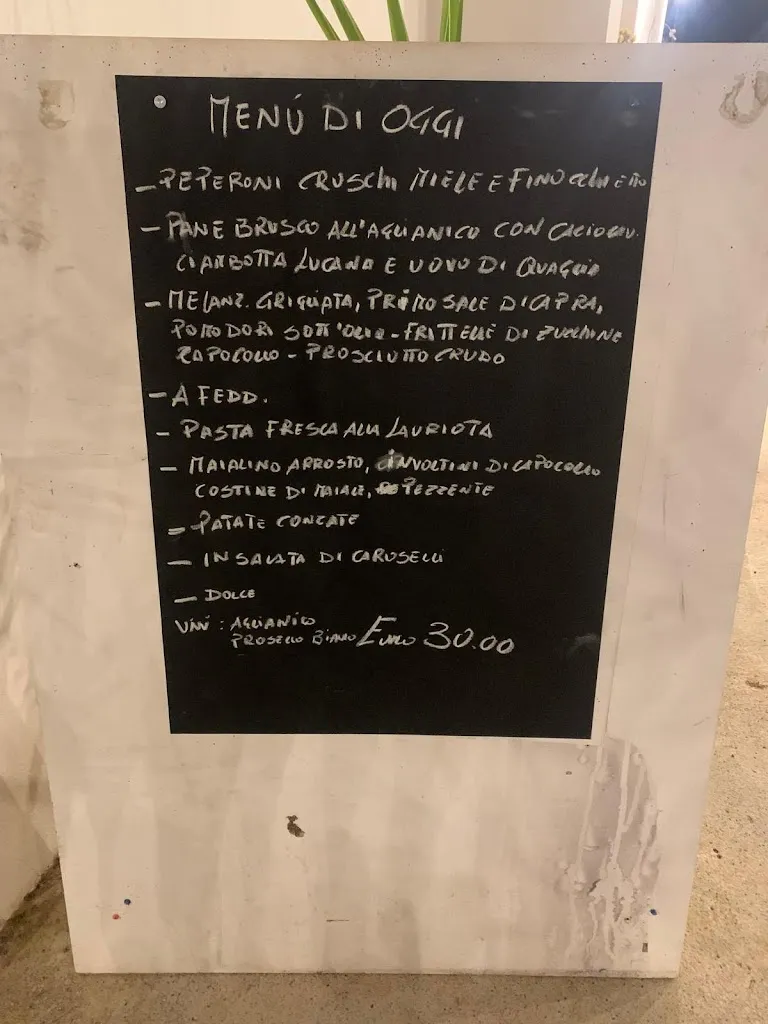 MENÚ DI OGGI
- PEPERONI CRUSCHI MIELE E FINOCCHIETTO
- PANE BRUSCO ALL'AGLIANICO CON CACIOCAV.
CIAMBOTTA LUCANA E UOVO DI QUAGLIA
- MELANZ. GRIGLIATA, PRIMO SALE DI CAPRA,
POMODORI SOTT'OLIO - FRITTELLE DI ZUCCHINE
CAPOCOLLO - PROSCIUTTO CRUDO
- A FEDD.
- PASTA FRESCA ALLA LAURIOTA
- MAIALINO ARROSTO, INVOLTINI DI CAPOCOLLO
COSTINE DI MAIALE, PEZZENTE
- PATATE CONZATE
- INSALATA DI CAROSELLI
- DOLCE
VINI: AGLIANICO
PROSECCO BIANCO EURO 30.00